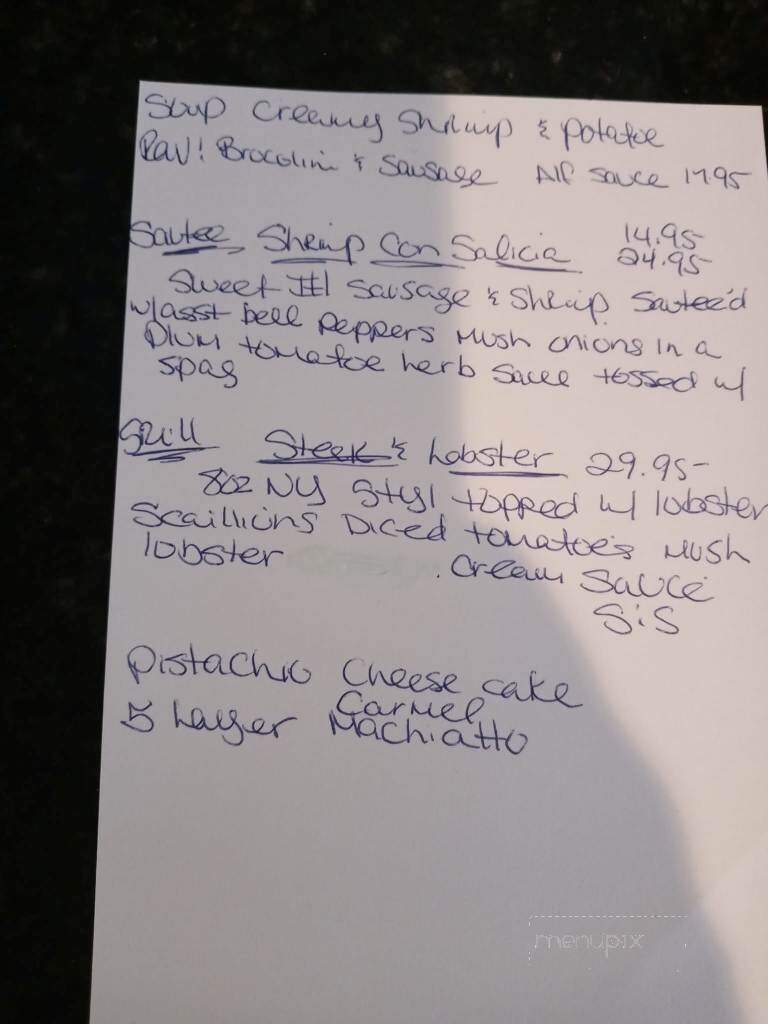 Soup Creamy Shrimp & potatoe
Rav! Brocolini & Sausage Alf sauce 17.95
Sautee, Shrimp Con Salicia 14.95
24.95
Sweet Itl Sausage & Shrimp Sautee'd
w/asst bell peppers Mush onions in a
plum tomatoe herb sauce tossed w/
spag
Grill Steak & Lobster 29.95
8oz NY Styl topped w/ lobster
Scaillions Diced tomatoe's Mush
lobster . Cream Sauce
S:S
Pistachio Cheese cake
5 Layer Carmel
Machiatto
menupix